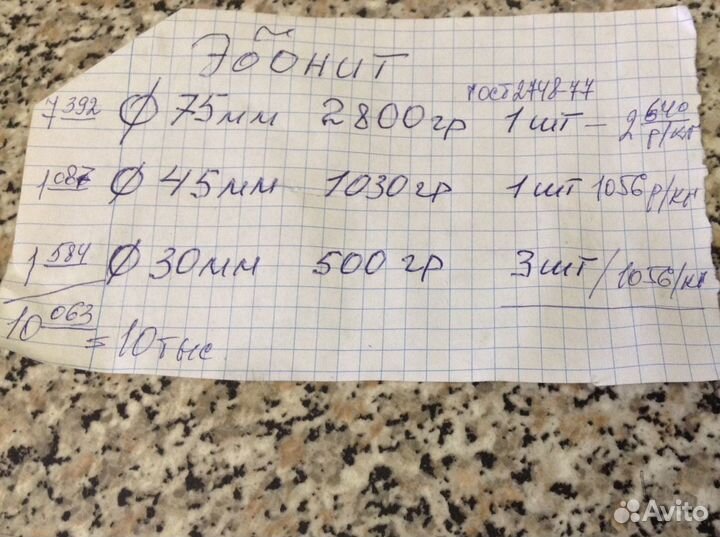 Эбонит
гост 2748-77
7 392 Ø 75мм 2800гр 1 шт – 2 640 р/кг
1 087 Ø 45мм 1030гр 1 шт 1056 р/кг
1 584 Ø 30мм 500гр 3 шт / 1056/кг
10 063 = 10 тыс.
Avito